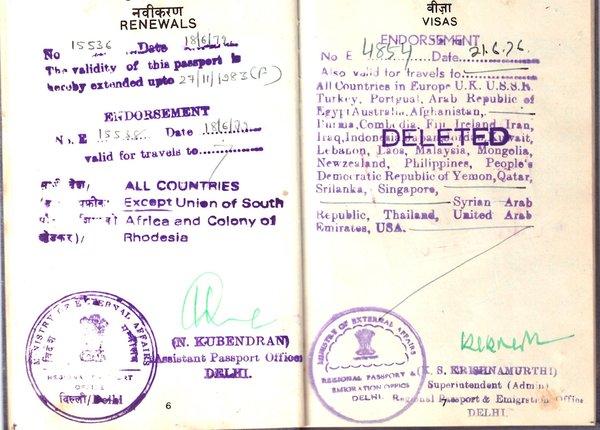 नवीकरण
RENEWALS
No 15536 Date 18/6/79
The validity of this passport is
hereby extended upto 27/11/1983 (P)
ENDORSEMENT
No. E 15536 Date 18/6/79
valid for travels to
ALL COUNTRIES
Except Union of South
Africa and Colony of
Rhodesia
(N. KUBENDRAN)
Assistant Passport Officer
DELHI.
MINISTRY OF EXTERNAL AFFAIRS
REGIONAL PASSPORT
OFFICE
दिल्ली/Delhi
6
वीज़ा
VISAS
ENDORSEMENT
No E 4854 Date 21.6.76
Also valid for travels to
All Countries in Europe U.K. U.S.S.R.
Turkey, Portgual, Arab Republic of
Egypt Australia, Afghanistan,
Burma, Combodia, Fiji Ireland, Iran,
Iraq, Indonesia Kuwait,
DELETED
Lebanon, Laos, Malaysia, Mongolia,
Newzealand, Philippines, People's
Democratic Republic of Yemon, Qatar,
Srilanka, Singapore,
Syrian Arab
Republic, Thailand, United Arab
Emirates, USA.
MINISTRY OF EXTERNAL AFFAIRS
REGIONAL PASSPORT &
EMIGRATION OFFICE
DELHI
(K. S. KRISHNAMURTHI)
Superintendent (Admn)
Regional Passport & Emigration Office
DELHI.